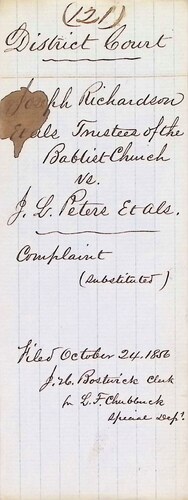 (121)
District Court
Joseph Richardson
Et als Trustees of the
Babtist Church
vs.
J. L. Peters Et als.
Complaint
(Substituted)
Filed October 24. 1856
J. H. Bostwick Clerk
for L. F. Chubbuck
Special Dept.